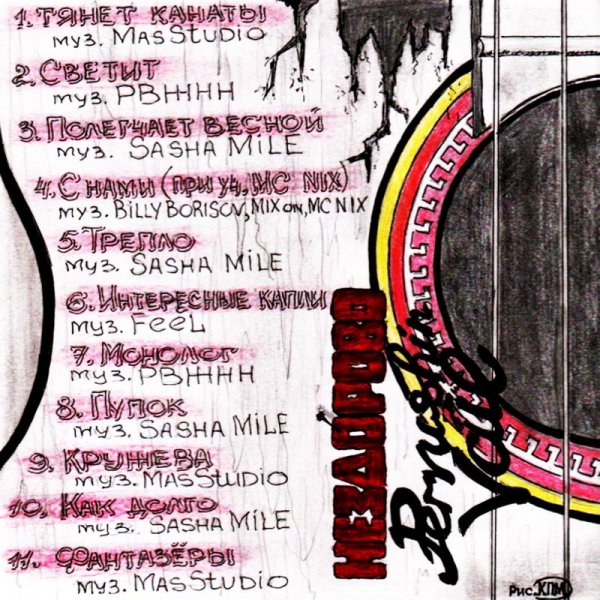 1. ТЯНЕТ КАНАТЫ
муз. MASSTUDIO
2. СВЕТИТ
муз. РВЖННН
3. ПОЛЕГЧАЕТ ВЕСНОЙ
муз. SASHA MILE
4. С НАМИ (ПРИ УЧ. MC NIX)
муз. BILLY BORISOV, MIX ON, MC NIX
5. ТРЕПЛО
муз. SASHA MILE
6. ИНТЕРЕСНЫЕ КАПЛИ
муз. FEEL
7. МОНОЛОГ
муз. РВЖННН
8. ПУПОК
муз. SASHA MILE
9. КРУЖЕВА
муз. MASSTUDIO
10. КАК ДОЛГО
муз. SASHA MILE
11. ФАНТАЗЁРЫ
муз. MASSTUDIO
НЕЗДОРОВО
Рис. КПМ